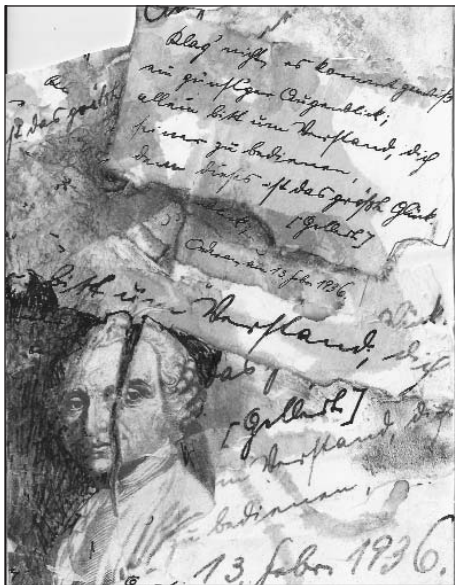 Klag' nicht, es kommt gewiß
ein günstger Augenblick;
allein bitt um Verstand, dich
seiner zu bedienen,
denn dieses ist das größte Glück.
[Gellert]
am 13 Febr. 1936.
st das größte
bitt um Verstand, dich
das
[Gellert]
m Verstand, dich
zu bedienen,
13. Febr. 1936.